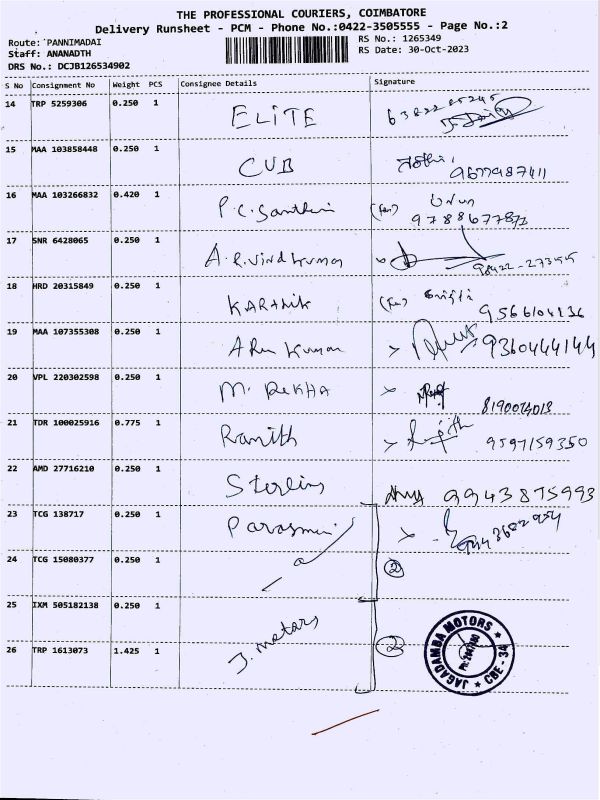 THE PROFESSIONAL COURIERS, COIMBATORE
Delivery Runsheet - PCM - Phone No.:0422-3505555 - Page No.:2
Route: PANNIMADAI
RS No.: 1265349
Staff: ANANADTH
RS Date: 30-Oct-2023
DRS No.: DCJB126534902
S No Consignment No Weight PCS Consignee Details Signature
14 TRP 5259306 0.250 1 ELITE
15 MAA 103858448 0.250 1 CUB
9677987411
16 MAA 103266832 0.420 1 P.C. Santhini
17 SNR 6428065 0.250 1 A.R.Vindkumar
18 HRD 20315849 0.250 1 KARTHIK
9566104136
19 MAA 107355308 0.250 1 ARun Kumar 9360444144
20 VPL 220302598 0.250 1 M. REKHA
8190014013
21 TDR 100025916 0.775 1 Ranjith Ranjith 9597159350
22 AMD 27716210 0.250 1 Sterling 9943875993
23 TCG 138717 0.250 1
24 TCG 15080377 0.250 1 2
25 IXM 505182138 0.250 1
26 TRP 1613073 1.425 1 J. motors 2
JAGADAMBA MOTORS ★ CBE - 34 ★